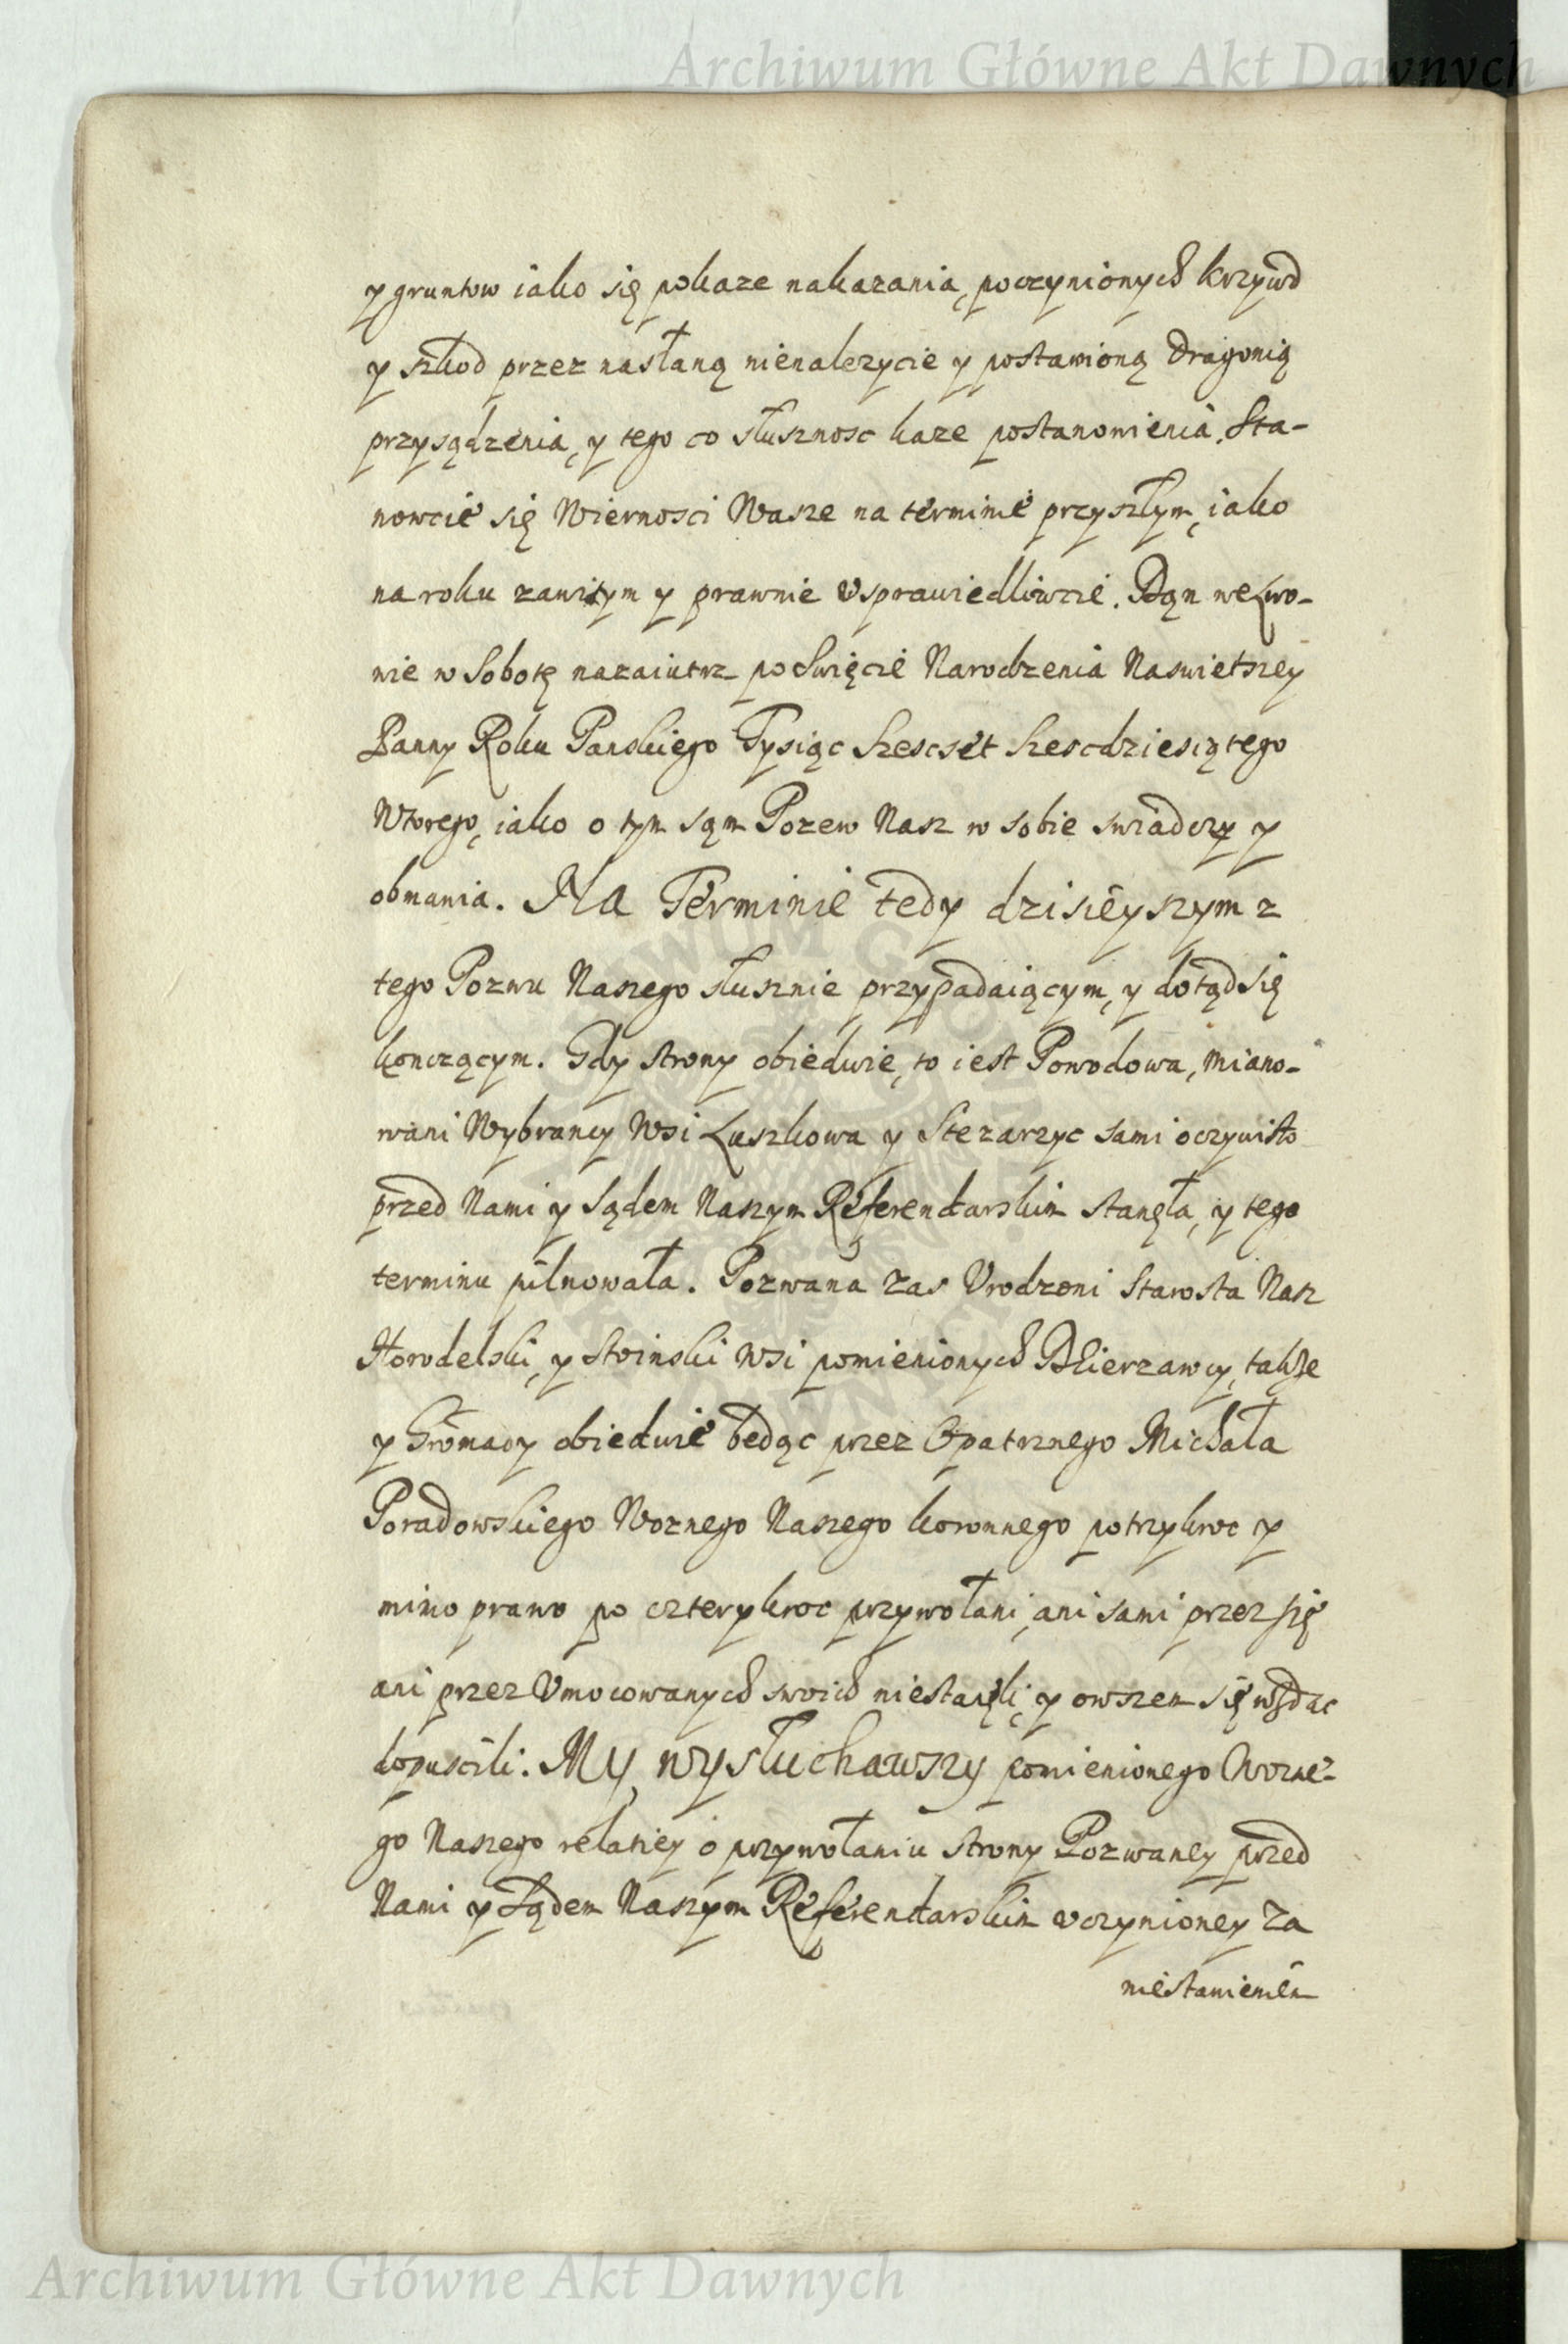 Archiwum Główne Akt Dawnych
y gruntow iako się pokaze nakazania, poczynionych krzywd
y szkod przez nasłaną nienalezycie y postawioną Dragonią
przysądzenia, y tego co słusznosc kaze postanowienia. Sta-
nowcie się Wiernosci Wasze na terminie przyszłym, iako
na roku zawitym y prawnie vsprawiedliwcie. Dąn we Lwo-
wie w Sobotę nazaiutrz po Swięcie Narodzenia Naswietszey
Panny Roku Panskiego Tysiąc Szescset Szescdziesiątego
Wtorego, iako o tym sąm Pozew Nasz w sobie swiadczy y
obmawia. Na Terminie tedy dzisieyszym z
tego Pozwu Naszego słusznie przypadaiącym, y dotąd się
konczącym. Gdy strony obiedwie, to iest Powodowa, miano-
wani Wybrancy Wsi Luszkowa y Stezarzyc sami oczywisto
przed Nami y Sądem Naszym Referendarskim stanęła, y tego
terminu pilnowała. Pozwana zas Vrodzeni Starosta Nasz
Horodelski, y Stoinski Wsi pomienionych Dzierzawcy, takze
y Gromady obiedwie będąc przez Opatrznego Michała
Poradowskiego Woznego Naszego koronnego potrzykroc y
mimo prawo po czterykroc przywołani, ani sami przez się
ani przez Vmocowanych swoich niestaneli, y owszem się wzdac
dopuscili. My wysłuchawszy pomienionego Wozne-
go Naszego relatiey o przywołaniu strony Pozwaney przed
Nami y Sądem Naszym Referendarskim vczynioney za
niestawieniem
Archiwum Główne Akt Dawnych